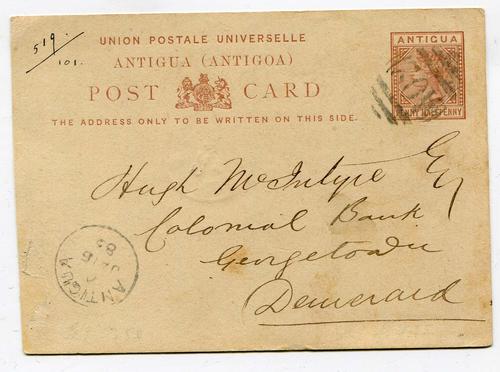 519.
101.
UNION POSTALE UNIVERSELLE
ANTIGUA (ANTIGOA)
POST CARD
THE ADDRESS ONLY TO BE WRITTEN ON THIS SIDE.
ANTIGUA
PENNY HALFPENNY
Hugh McIntyre Eq
Colonial Bank
Georgetown
Demerara
ANTIGUA
85